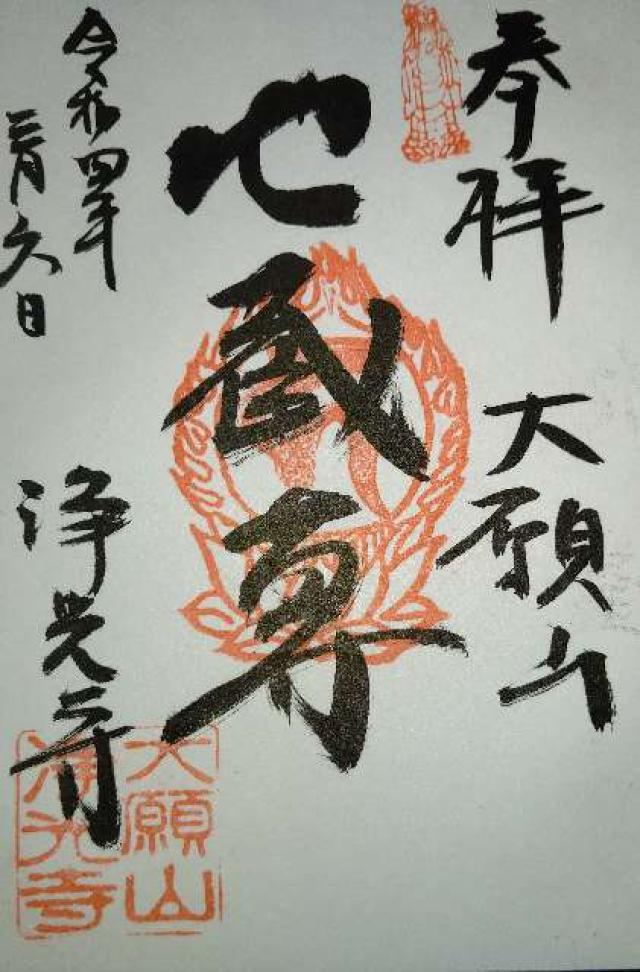 奉拝
大願山
地蔵尊
令和四年
三月六日
浄光寺
大願山
浄光寺